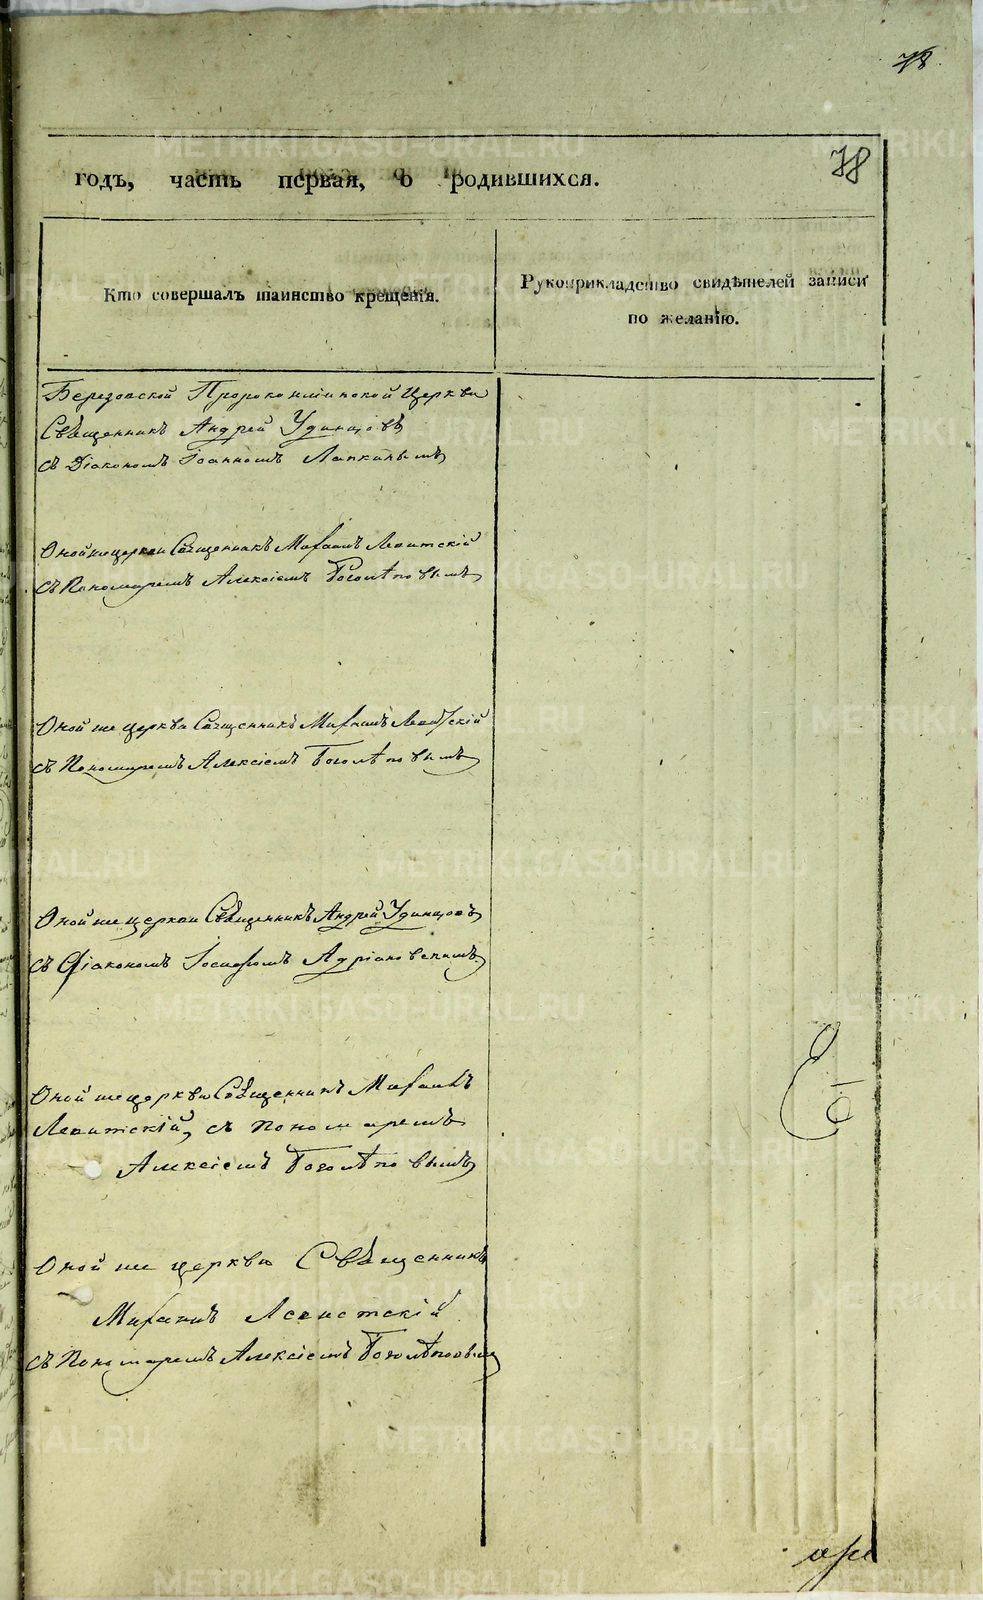 78
78
годъ, часть первая, о родившихся.
Кто совершалъ таинство крещенія.
Рукоприкладство свидѣтелей записи
по желанію.
Березовской Пророкоилiинской Церкви
Священникъ Андрей Удинцовъ
съ Діакономъ Іоанномъ Лапкинымъ
Оной же церкви Священникъ Михаилъ Левитскій
съ Пономаремъ Алексіемъ Боголѣповымъ
Оной же церкви Священникъ Михаилъ Левитскій
съ Пономаремъ Алексіемъ Боголѣповымъ
Оной же церкви Священникъ Андрей Удинцовъ
съ Діакономъ Іосифомъ Адріановскимъ
Оной же церкви Священникъ Михаилъ
Левитскій, съ пономаремъ
Алексіемъ Боголѣповымъ
Оной же церкви Священникъ
Михаилъ Левитскій
съ Пономаремъ Алексіемъ Боголѣповым
METRIKI.GASO-URAL.RU